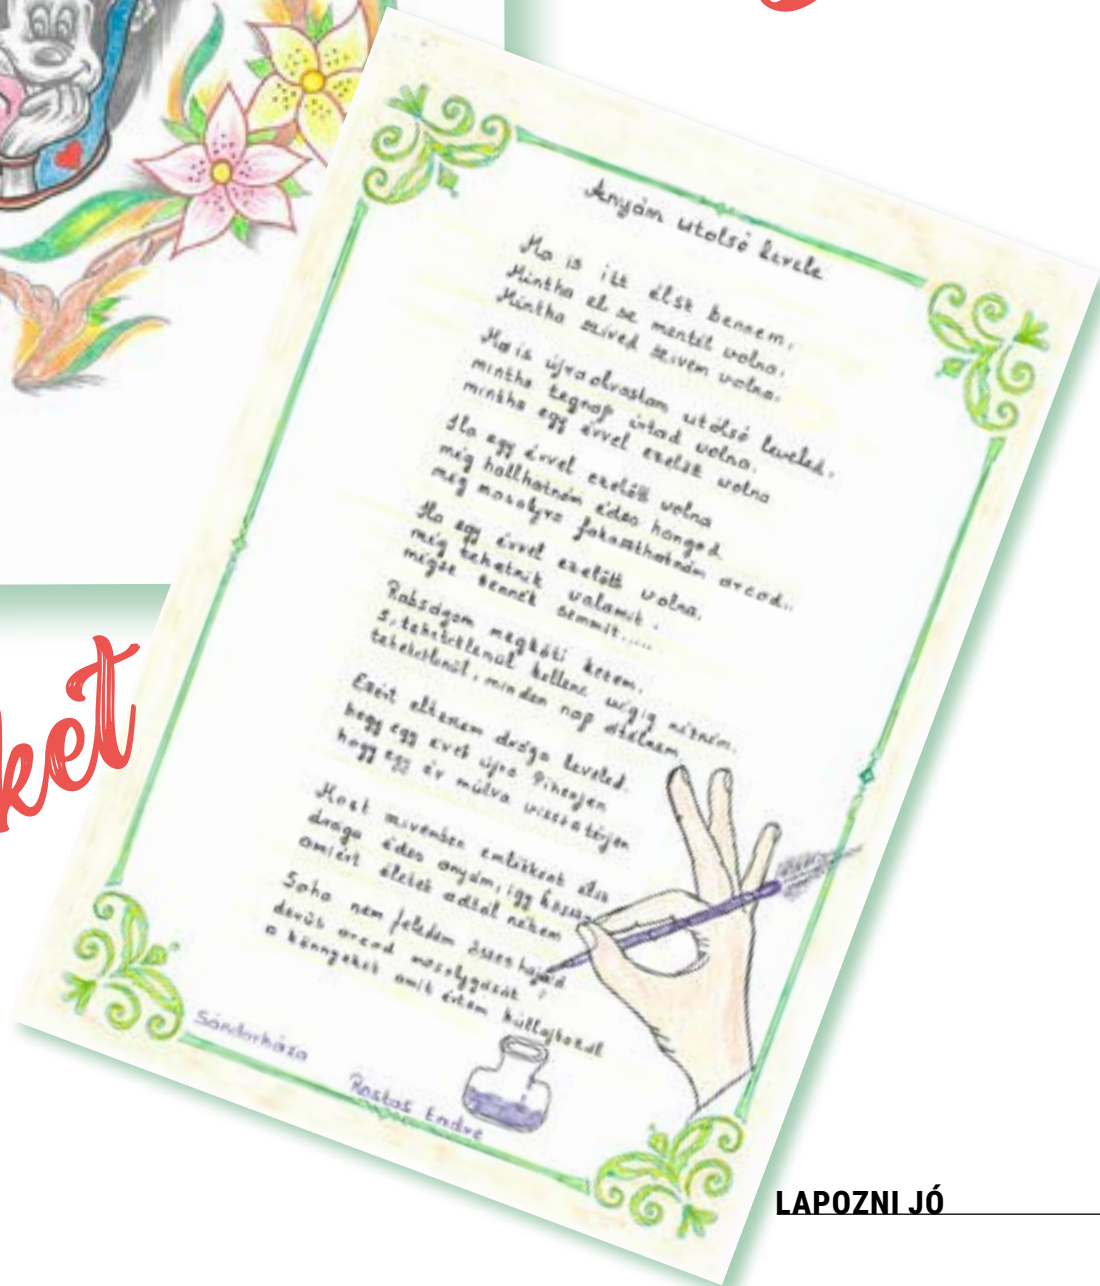 Anyám utolsó levele
Ma is itt élsz bennem,
Mintha el se mentél volna,
Mintha szíved szívem volna.
Ma is újraolvastam utolsó leveled,
mintha tegnap írtad volna,
mintha egy évvel ezelőtt volna
Ha egy évvel ezelőtt volna
még hallhatnám édes hangod
még mosolyra fakaszthatnám arcod..
Ha egy évvel ezelőtt volna,
még tehetnék valamit,
mégse tennék semmit.....
Rabságom megköti kezem,
s, tehetetlenül kellene végig néznem,
tehetetlenül, minden nap átélnem,
Ezért elteszem drága leveled.
hogy egy évet újra Pihenjen
hogy egy év múlva visszatérjen
Most szívemben emlékként élsz
drága édes anyám, így
amiért életet adtál nekem
Soha nem feledem összes hajad
derűs arcod mosolygását,
a könnyeket amit értem hullajtottál
Sándorháza
Rostas Endre
ket
LAPOZNI JÓ